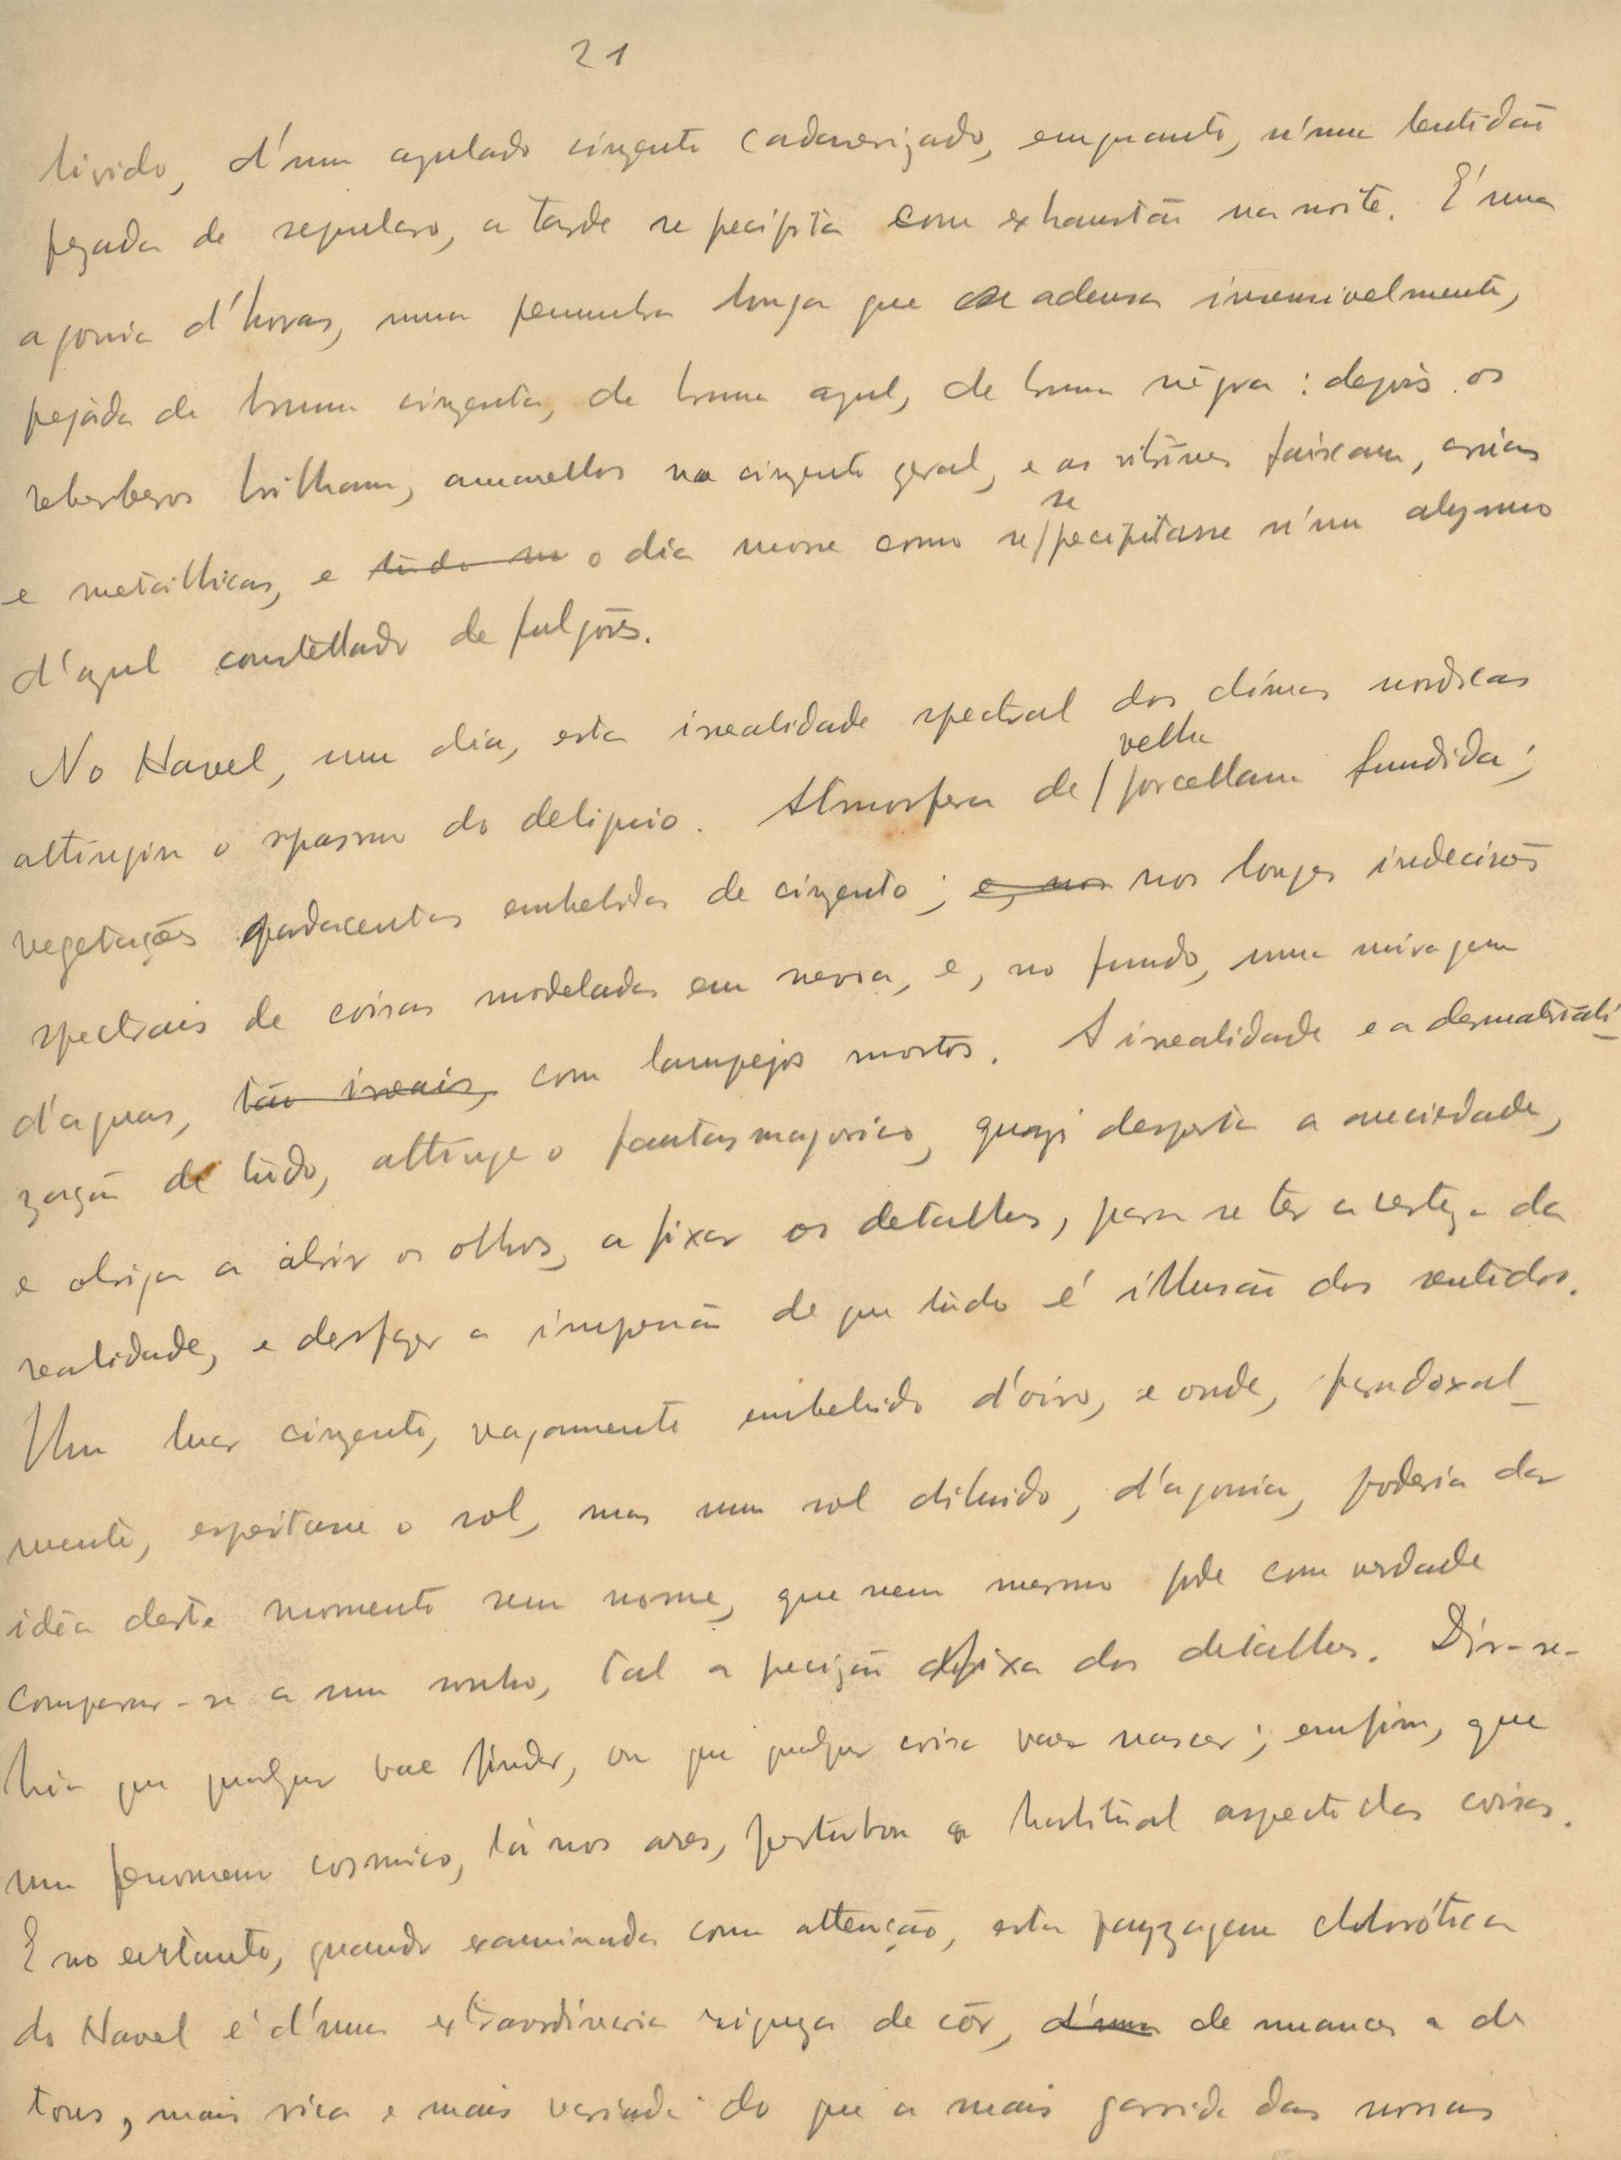 21
livido, d'um azulado cinzento cadaverizado, emquanto, n'uma lentidão
pezada de sepulcro, a tarde se precipita com exhaustão na noite. É uma
agonia d'horas, uma penumbra longa que se adensa insensivelmente,
pejada de bruma cinzenta, de bruma azul, de bruma négra: depois os
reberberos brilham, amarellos no cinzento geral, e as vitrines faiscam,
e metallicas, e tudo se o dia morre como se se precipitasse n'um abysmo
d'azul constellado de fulgôres.
No Havel, um dia, esta irrealidade spectral dos climas nordicos
attingiu o spasmo do deliquio. Atmosfera de velha porcellana fundida;
vegetações pardacentas embebidas de cinzento; e, nos nos longes indecisões
spectrais de coisas modeladas em nevoa, e, no fundo, uma miragem
d'aguas, tão irreais, com lampejos mortos. A irrealidade e a desmateriali-
zação de tudo, attinge o fantasmagorico, quazi desperta a anciedade,
e obriga a abrir os olhos, a fixar os detalhes, para se ter a certeza da
realidade, e desfazer a impressão de que tudo é illusão dos sentidos.
Um luar cinzento, vagamente embebido d'oiro, e onde, paradoxal-
mente, espeitasse o sol, mas um sol diluido, d'agonia, poderia dar
idéa deste momento sem nome, que nem mesmo pode com verdade
comparar-se a um sonho, tal a precizão fixa dos detalhes. Dir-se-
hia que qualquer vae findar, ou que qualquer coisa vae nascer; emfim, que
um fenomeno cosmico, lá nos ares, perturbou o habitual aspecto das coisas.
E no entanto, quando examinada com attenção, esta payzagem chlorótica
do Havel é d'uma extraordinaria riqueza de côr, d'uma de nuances e de
tons, mais rica e mais variada do que a mais garrida das nossas